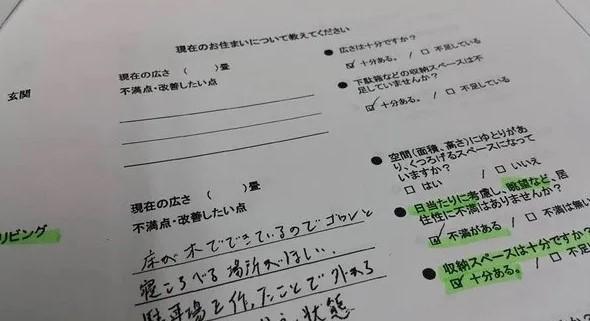 現在のお住まいについて教えてください
玄関
現在の広さ （ ）畳
不満点・改善したい点
● 広さは十分ですか？
☑ 十分ある。 / □ 不足している
● 下駄箱などの収納スペースは不
足していませんか？
☑ 十分ある。 / □ 不足している
リビング
現在の広さ （ ）畳
不満点・改善したい点
床が木でできているのでゴロンと
寝ころべる場所がほしい。
駐車場を作ったことで外から
状態
● 空間（面積、高さ）にゆとりがあ
り、くつろげるスペースになって
いますか？
□ はい / □ いいえ
● 日当たりに考慮し、眺望など、居
住性に不満はありませんか？
☑ 不満がある / □ 不満は無い
● 収納スペースは十分ですか？
☑ 十分ある。 / □ 不足